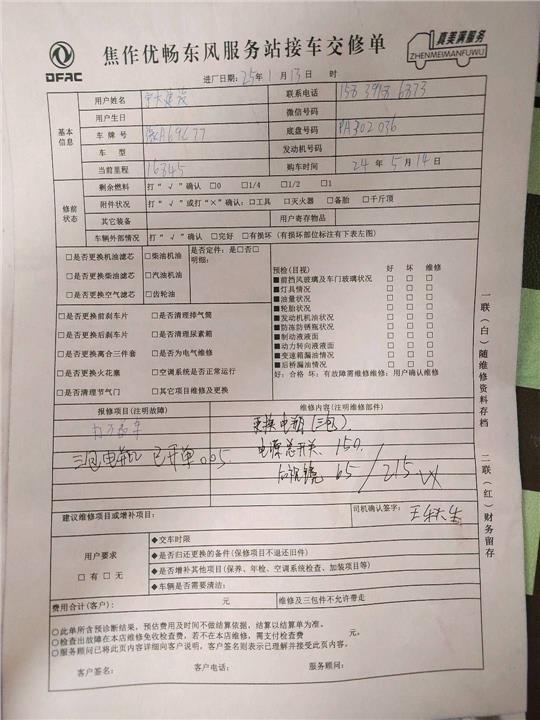 DFAC
焦作优畅东风服务站接车交修单
真美满服务
ZHENMEIMANFUWU
进厂日期：25年1月13日 时
基本信息
用户姓名 联系电话
用户生日 微信号码
车牌号 底盘号码 PA302036
车型 发动机号码
当前里程 16345 购车时间 24年5月14日
修前状态
剩余燃料 打“√”确认 □0 □1/4 □1/2 □1
附件状况 打“√”或打“×”确认：□工具 □灭火器 □备胎 □千斤顶
其它装备 用户寄存物品
车辆外部情况 打“√”确认 □完好 □有损坏（有损坏部位标注有下表左图）
□是否更换机油滤芯 □柴油机油
□是否更换柴油滤芯 □汽油机油
□是否更换空气滤芯 □齿轮油
是否定件：是□否□
明细：
□是否更换前刹车片 □是否清理排气筒
□是否更换后刹车片 □是否清理尿素箱
□是否更换离合三件套 □是否为电气维修
□是否更换火花塞 □空调系统是否正常运行
□是否清理节气门 □其它项目维修及更换
预检（目视） 好 坏 维修
■前挡风玻璃及车门玻璃状况 □ □ □
■灯具情况 □ □ □
■油量状况 □ □ □
■轮胎状况 □ □ □
■发动机机油状况 □ □ □
■防冻防锈瓶状况 □ □ □
■制动液液面 □ □ □
■动力转向液液面 □ □ □
■变速箱漏油情况 □ □ □
■后桥漏油情况 □ □ □
好：合格 坏：有故障需维修维修：用户确认维修
报修项目（注明故障） 维修内容（注明维修部件）
打不着车
更换电瓶（三包）
三包电瓶 已开单005.
电源总开关、150.
后视镜 65 / 215
建议维修项目或增补项目：
司机确认签字：
用户要求
□有□无
◆交车时限
◆是否归还更换的备件（保修项目不退还旧件）
◆是否增补其他项目（保养、年检、空调系统检查、加装项目等）
◆车辆是否需要清洁：
费用合计（客户）： 元 维修及三包件不允许带走
○此单所含预诊断结果，预估费用及时间不做结算依据，结算以结算单为准。
○检查出故障在本店维修免收检查费，若不在本店维修，需支付检查费 元。
○服务顾问已将此页内容详细向客户说明，客户签名则表示已理解并接受此页内容。
客户签名： 客户电话： 服务顾问：
一联（白）随维修资料存档
二联（红）财务留存